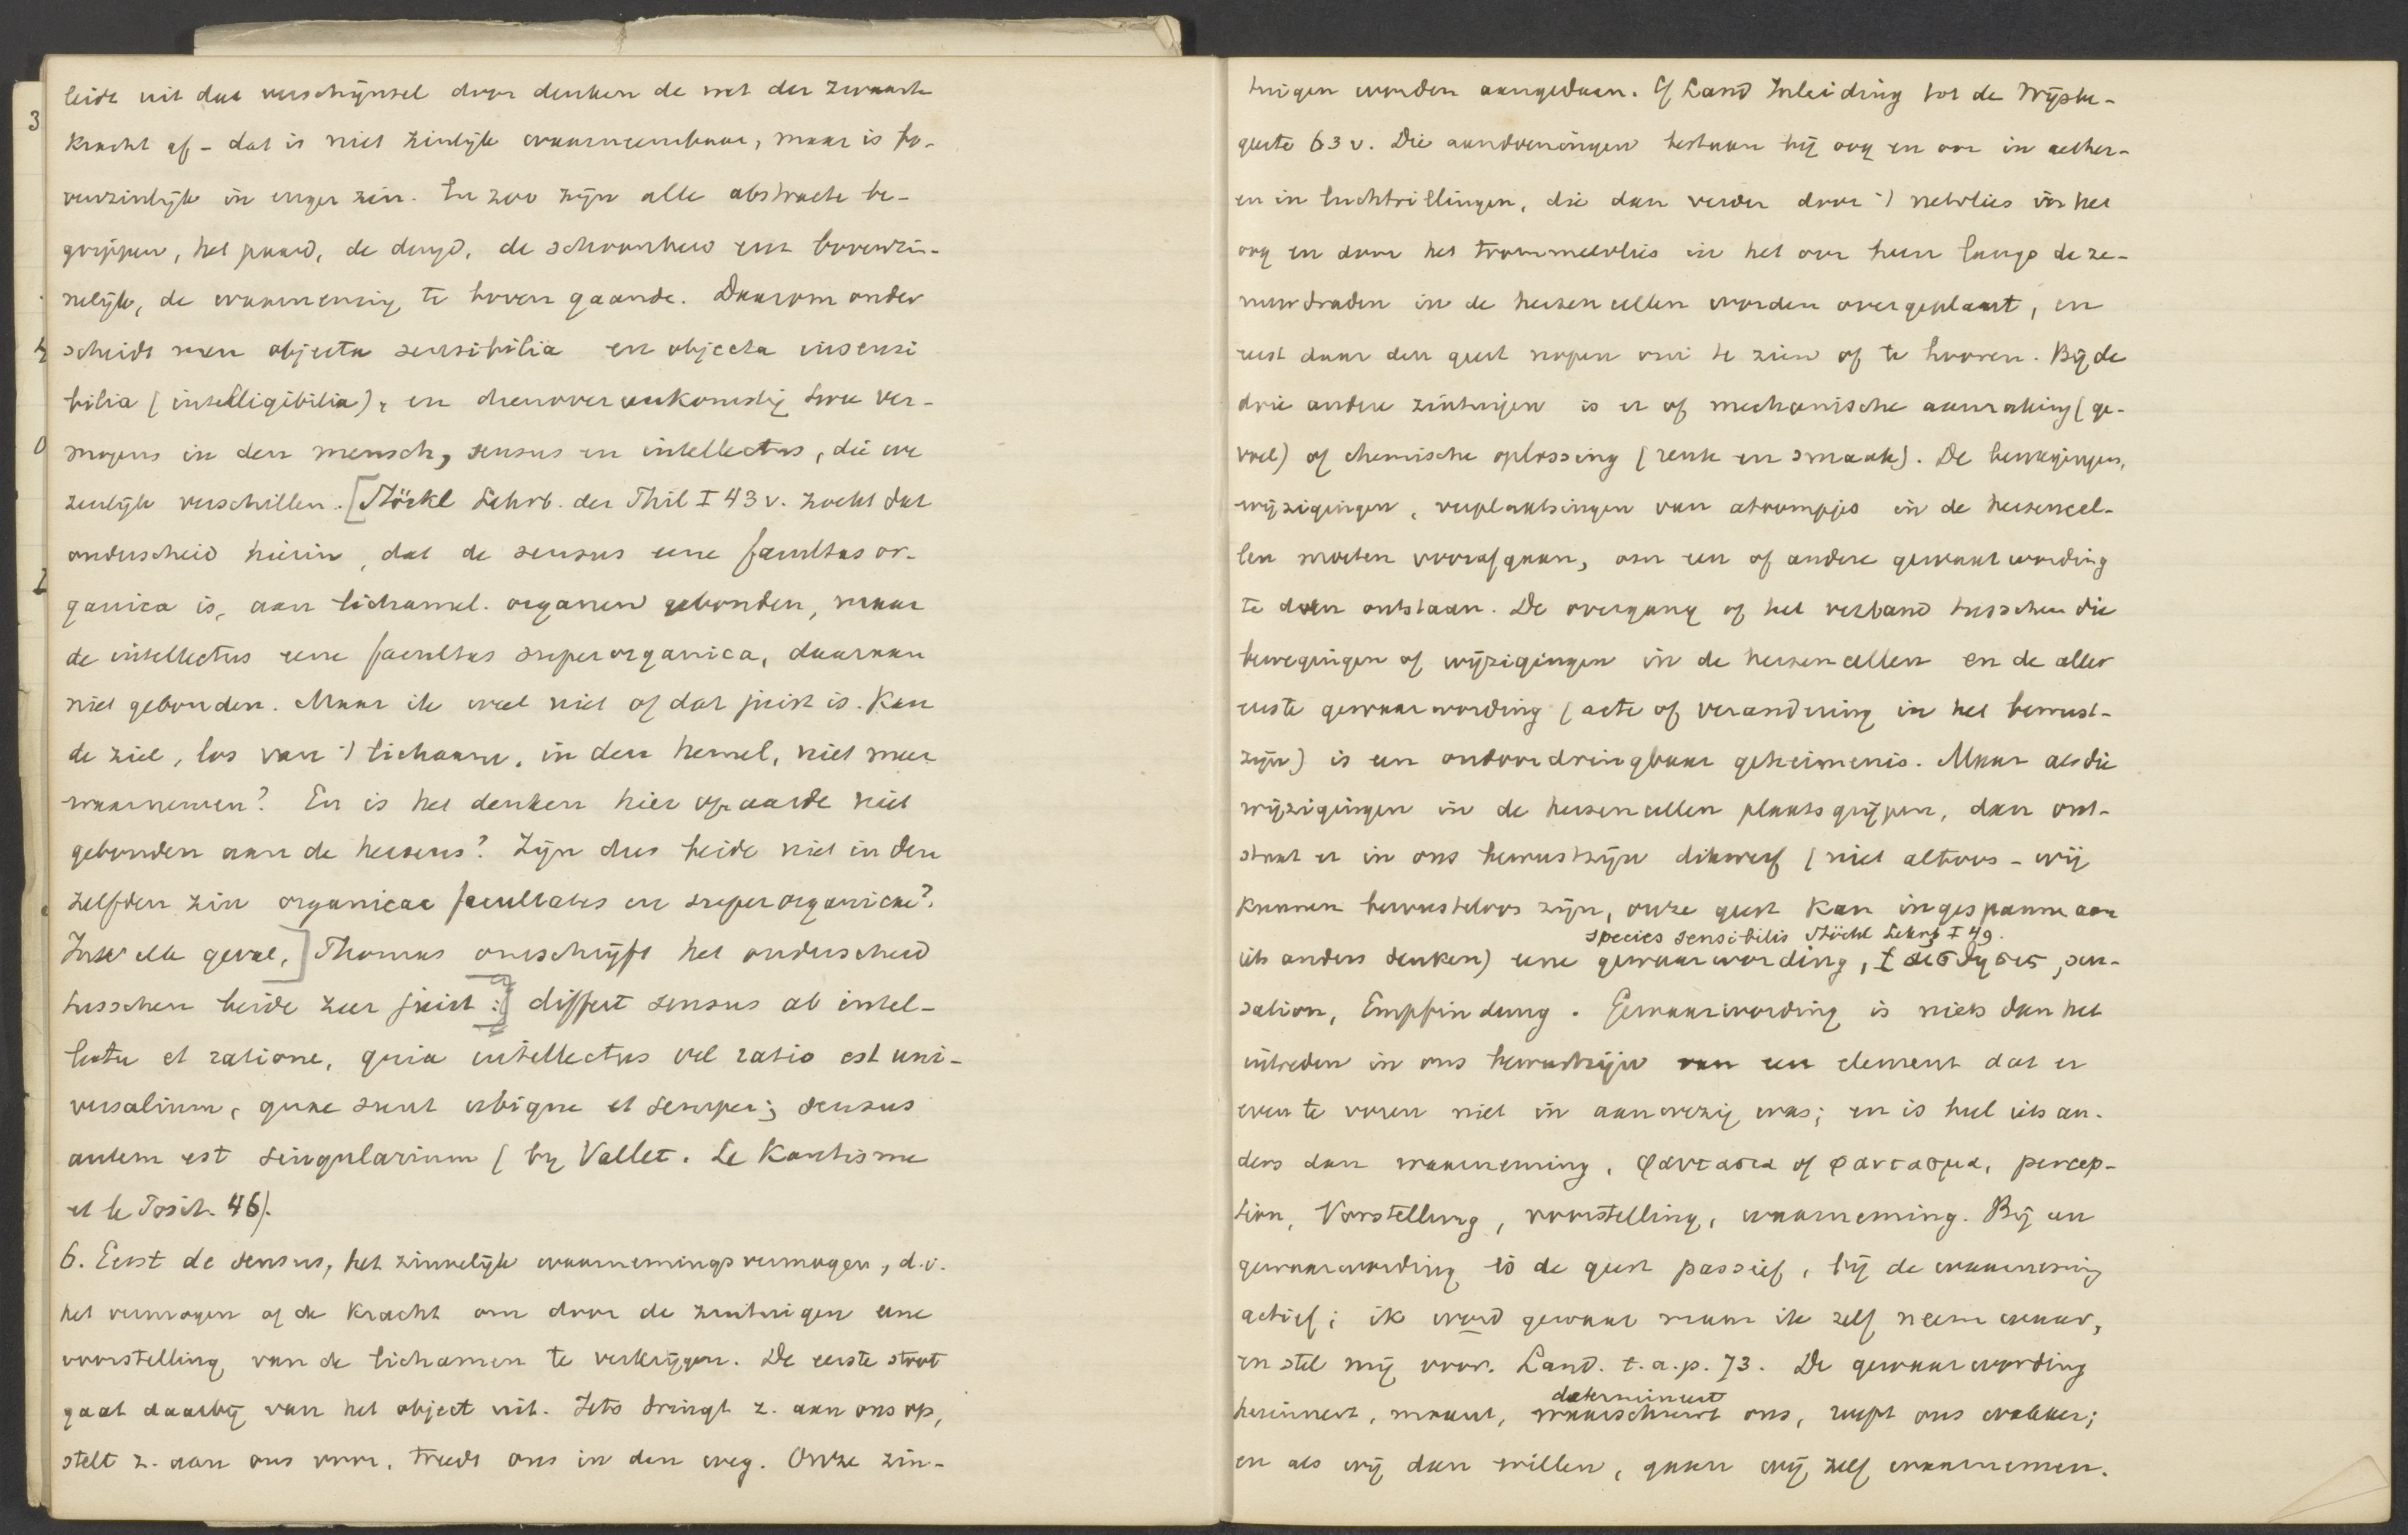 leidt uit dat verschijnsel door denken de wet der zwaarte
kracht af - dat is niet zinlijk waarneembaar, maar is bo-
venzinlijk in enger zin. En zoo zijn alle abstracte be-
grippen, het paard, de deugd, de schoonheid enz bovenzin-
nelijk, de waarneming te boven gaande. Daarom onder
scheidt men objecta sensibilia en objecta insensi
bilia (intelligibilia), en dienovereenkomstig twee ver-
mogens in den mensch, sensus en intellectus, die we
zenlijk verschillen. [Stöckl Lehrb. der Phil I 43 v. zoekt dat
onderscheid hierin, dat de sensus eene facultas or-
ganica is, aan lichamel. organen gebonden, maar
de intellectus eene facultas superorganica, daaraan
niet gebonden. Maar ik weet niet of dat juist is. Kan
de ziel, los van 't lichaam, in den hemel, niet meer
waarnemen? En is het denken hier op aarde niet
gebonden aan de hersens? Zijn dus beide niet in den
zelfden zin organicae facultates en superorganicae?
In elk geval,] Thomas omschrijft het onderscheid
tusschen beide zeer juist: differt sensus ab intel-
lectu et ratione, quia intellectus vel ratio est uni-
versalium, quae sunt ubique et semper; sensus
autem est singularium (by Vallet. Le Kantisme
et le Posit. 46).
6. Eerst de sensus, het zinnelijk waarnemingsvermogen, d.i.
het vermogen of de kracht om door de zintuigen eene
voorstelling van de lichamen te verkrijgen. De eerste stoot
gaat daarbij van het object uit. Iets dringt z. aan ons op,
stelt z. aan ons voor, treedt ons in den weg. Onze zin-
3
4
0
2
tuigen worden aangedaan. Cf Land Inleiding tot de Wijsbe-
geerte 63 v. Die aandoeningen bestaan bij oog en oor in aether-
en in luchttrillingen, die dan verder door 't netvlies in het
oog en door het trommelvlies in het oor heen langs de ze-
nuwdraden in de hersencellen worden overgeplant, en
eerst daar den geest nopen om te zien of te hooren. Bij de
drie andere zintuigen is er of mechanische aanraking (ge-
voel) of chemische oplossing (reuk en smaak). De bewegingen,
wijzigingen, verplaatsingen van atoompjes in de hersencel-
len moeten voorafgaan, om een of andere gewaarwording
te doen ontstaan. De overgang of het verband tusschen die
bewegingen of wijzigingen in de hersencellen en de aller
eerste gewaarwording (acte of verandering in het bewust-
zijn) is een ondoordringbaar geheimenis. Maar als die
wijzigingen in de hersencellen plaatsgrijpen, dan ont-
staat er in ons bewustzijn dikwerf (niet altoos - wij
kunnen bewusteloos zijn, onze geest kan ingespannen aan
species sensibilis Stöckl Lehrb I 49.
iets anders denken) eene gewaarwording, αἰσθησις, sen-
sation, Empfindung. Gewaarwording is niets dan het
intreden in ons bewustzijn van een element dat er
even te voren niet in aanwezig was; en is heel iets an-
ders dan waarneming, φαντασια of φαντασμα, percep-
tion, Vorstellung, voorstelling, waarneming. Bij een
gewaarwording is de geest passief, bij de waarneming
actief; ik word gewaar maar ik zelf neem waar,
en stel mij voor. Land. t.a.p. 73. De gewaarwording
determineert
herinnert, maant, waarschuwt ons, roept ons wakker;
en als wij dan willen, gaan wij zelf waarnemen.